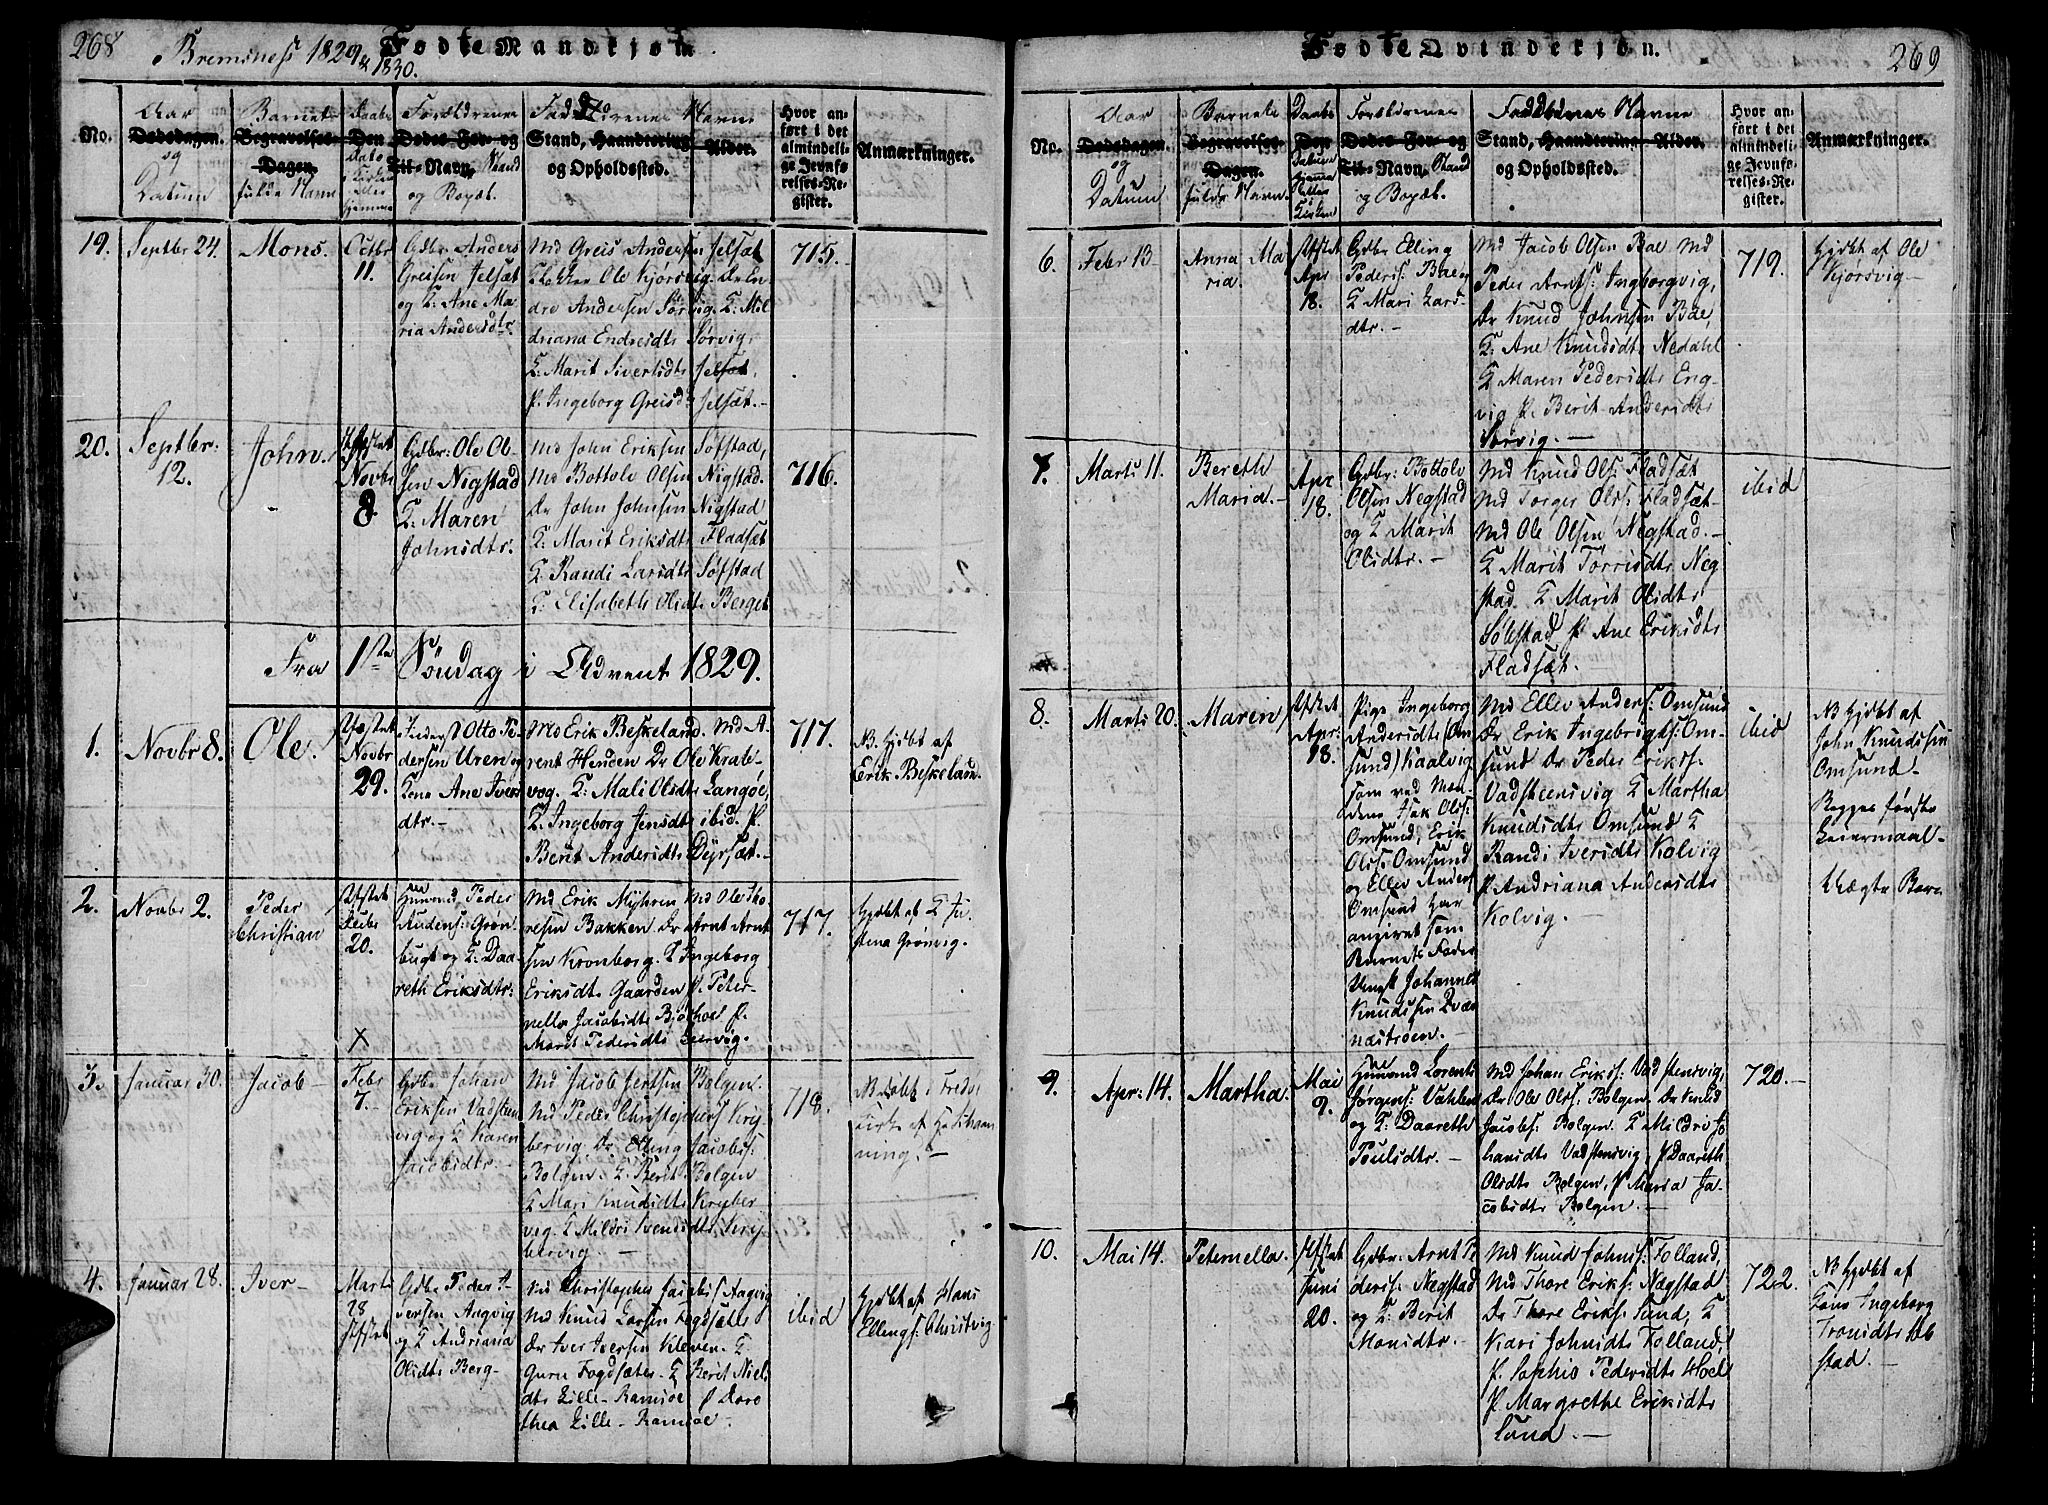 268 Bremsnes 1829 & 1830. Fødte Mandkjøn
No.
Aar
Dødsdagen.
og
Datum
Barnets
Begravelses-
Dagen.
fulde Navn
Daabs
Den
Forældrenes
Dødes For- og
Til-Navn, Stand
og Bopæl.
Faddrenes Navne
Stand, Haandtering
og Opholdssted.
Alder.
Hvor an-
ført i det
almindeli-
ge Jevnfø-
relses-Re-
gister.
Anmærkninger.
19.
Septbr 24.
Mons.
Octbr
11.
Gdbr. Anders
Greisen Jelsæt
og K. Ane Ma-
ria Andersdtr.
Md Greis Andersen Jelsæt
Klokker Ole Kjorsvig. Dr En-
dre Andersen Sørvig. K. Mil-
driana Endresdtr Sørvig.
K. Marit Sivertsdtr Jelsæt.
P. Ingeborg Greisd. Jelsæt.-
715.
20.
Septbr.
12.
John.
Novbr
8.
Gdbr: Ole Ol-
sen Nigstad
K. Maren
Johnsdtr.
Md John Eriksen Søfstad,
Md Bottolv Olsen Nigstad.
Dr John Johnsen Nigstad
K. Marit Eriksdtr Fladsæt
K. Randi Larsdtr Søfstad
K. Elisabeth Olsdtr Berget
716.
Fra 1ste Søndag i Advent 1829.
1.
Novbr 8.
Ole.
Novbr
29.
Otto Pe-
dersen Uren og
Kone Ane Ivers
dtr.-
Md Erik Beskeland. Md A-
rent Henden Dr Ole Krake-
vog. K. Mali Olsdtr Langøe,
K. Ingeborg Jensdtr ibid. P.
Berit Andersdtr Dyrsæt.-
717.
NB. Hjdbt af
Erik Beskeland.
2.
Novbr 2.
Peder
Christian
20.
Huusmand Peder
Andens: Grøn-
bugt og K. Daa-
reth Eriksdtr:
Md Erik Myhren Md Ole Tho-
resen Bakken Dr Arnt Arnt
sen Kronborg. K Ingeborg
Eriksdtr Gaarden P. Peter-
nella Jacobsdtr
Marit Pedersdtr Leirvig.
717.
Hjdbt af K Ju-
stina Grønvig.
3.
Januar 30.
Jacob-
X
Febr
7.-
Gdbr Johan
Eriksen Vadsteen
vig og K Karen
Jacobsdtr.-
Md Jacob Jertsen Bolgen.
Md Peder Christophers Kry-
bervig. Dr Elling Jacobs:
Bolgen. K. Berit Bolgen
K Mari Knudsdtr Kryber
vig. K Mildri Svendsdtr Kry-
bervig. -
718.
4.
Januar 28.
Iver-
Marts
28
Gdbr Peder I-
versen Aagvig
og K Andriana
Olsdtr Berg-
Md Christopher Jacobs: Aagvig
Md Knud Larsen Fogdsæter
Dr Iver Iversen Kleven. K
Guru Fogdsæter. K Berit Niels
dtr Lille-Ramsøe P Doro
thea Lille-Ramsøe -
ibid
Hjdbt af Hans
Ellings: Christvig
Fødte Qvindekjøn. 269
No.
Aar
Dødsdagen.
og
Datum
Barnets
Begravelses-
Dagen.
fulde Navn.
Daabs
Den
Datum
Hjemme
eller
Kirken
Forældrenes
Dødes For- og
Til-Navn, Stand
og Bopæl.
Faddrenes Navne
Stand, Haandtering
og Opholdssted.
Alder.
Hvor an-
ført i det
almindeli-
ge Jevnfø-
relses-Re-
gister.
Anmærkninger.
6.
Febr 13
Anna Ma-
ria.
Apr
18.
Gdbr Elling
Peders: Bae og
K Mari Lars
dtr.-
Md Jacob Olsen Bae Md
Peder Arnts: Ingeborgvig,
Dr Knud Johnsen Bae,
K. Ane Knudsdtr Nedahl
K Maren Pedersdtr Eng-
vig P. Berit Andersdtr
Sørvig. -
719.
Hjdbt af Ole
Kjorsvig-
7.
Marts 11.
Bereth
Maria.-
Apr
18.
Gdbr: Bottolv
Olsen Negstad
og K Marit
Olsdtr.-
Md Knud Ols: Fladsæt
Md Torger Ols: Fladsæt-
Md Ole Olsen Negstad.-
K Marit Torrisdtr Neg
stad. K Marit Olsdtr
Solstad, P. Ane Eriksdtr
Fladsæt.
ibid
8.
Marts 20.
Maren
Apr:
18.
Pige Ingeborg
Andersdtr (Om-
sund) Kaalvig
som ved Mæn-
dene Isak Ols:
Omsund, Erik
Ols: Omsund
og Ellev Anders:
Omsund har
angivet som
Barnets Fader
Ungk Johannes
Knudsen Qvær-
næstrøen.-
Md Ellev Anders: Omsund
Dr Erik Ingebrigts: Om-
sund Dr Peder Eriks:
Vadsteensvig K Martha
Knudsdtr Omsund K
Randi Iversdtr Kolvig
P. Andriana Andersdtr
Kolvig.-
ibid
NB Hjdbt af
John Knudssen
Omsund.-
Begges første
Leiermaal-
Uægte Barn
9.
Apr: 14.
Martha.
Mai
9.
Huusmand Lorents
Jørgens: Vahlen
og K: Daareth
Poulsdtr.-
Md Johan Eriks: Vadstensvig,
Dr Ole Ols: Bolgen, Dr Knud
Jacobs: Bolgen. K Mildri Jo
hansdtr Vadstensvig, P Daareth
Olsdtr Bolgen, P Maria Ja-
cobsdtr Bolgen.-
720.-
10.
Mai 14.
Peternella.
Juni
20.
Gdbr: Arnt Pe
ders: Nægstad
og K: Berit
Monsdtr.
Md Knud Johns: Folland,
Md Thore Eriks: Nægstad
Dr Thore Eriks: Sund, K
Kari Johnsdtr Folland,
P. Sophie Pedersdtr Hoel
P. Margrethe Eriksdtr
Sund.-
722.
NB Hjdbt af
Kone Ingeborg
Tronsdtr
stad.-